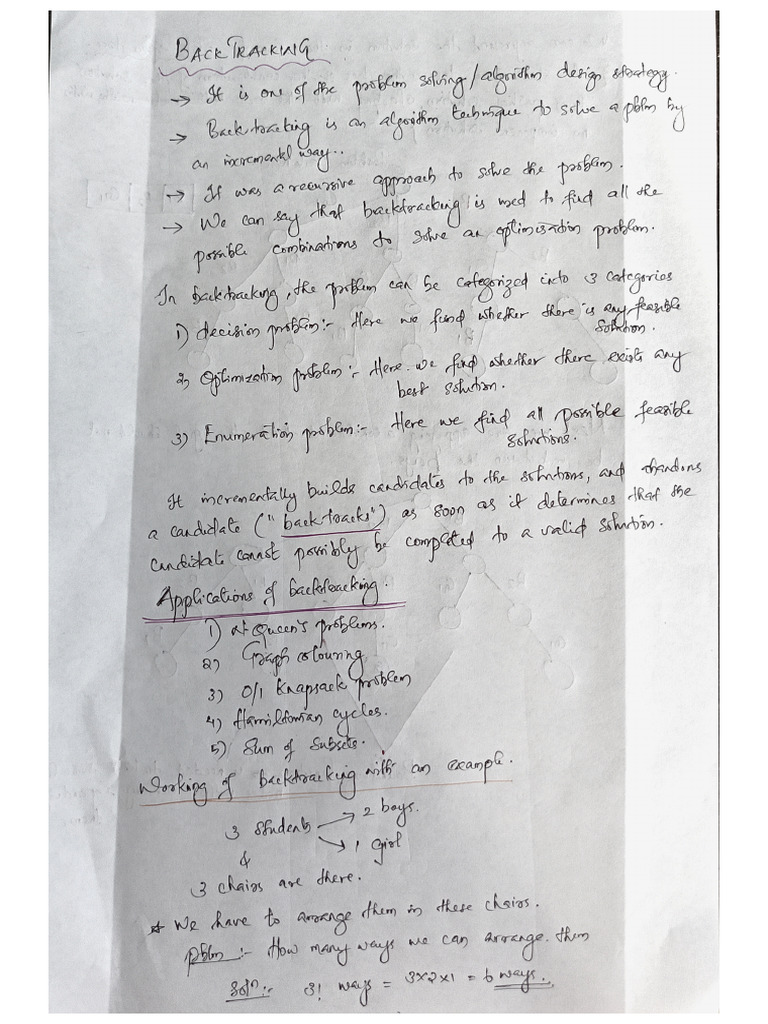 BACKTRACKING
→ It is one of the problem solving/algorithm design strategy.
→ Backtracking is an algorithm technique to solve a pblm by
an incremental way..
→ It was a recursive approach to solve the problem.
→ We can say that backtracking is used to find all the
possible combinations to solve an optimization problem.
In backtracking, the problem can be categorized into 3 categories
1) decision problem:- Here we find whether there is any feasible
solution.
2) Optimization problem:- Here we find whether there exists any
best solution.
3) Enumeration problem:- Here we find all possible feasible
solutions.
It incrementally builds candidates to the solutions, and abandons
a candidate ("backtracks") as soon as it determines that the
candidate cannot possibly be completed to a valid solution.
Applications of backtracking.
1) N-Queen's problems.
2) Graph colouring
3) 0/1 Knapsack problem
4) Hamiltonian cycles.
5) Sum of subsets.
Working of backtracking with an example.
3 students → 2 boys.
→ 1 girl
&
3 chairs are there.
* We have to arrange them in these chairs.
pblm:- How many ways we can arrange them
Soln:- 3! ways = 3×2×1 = 6 ways.